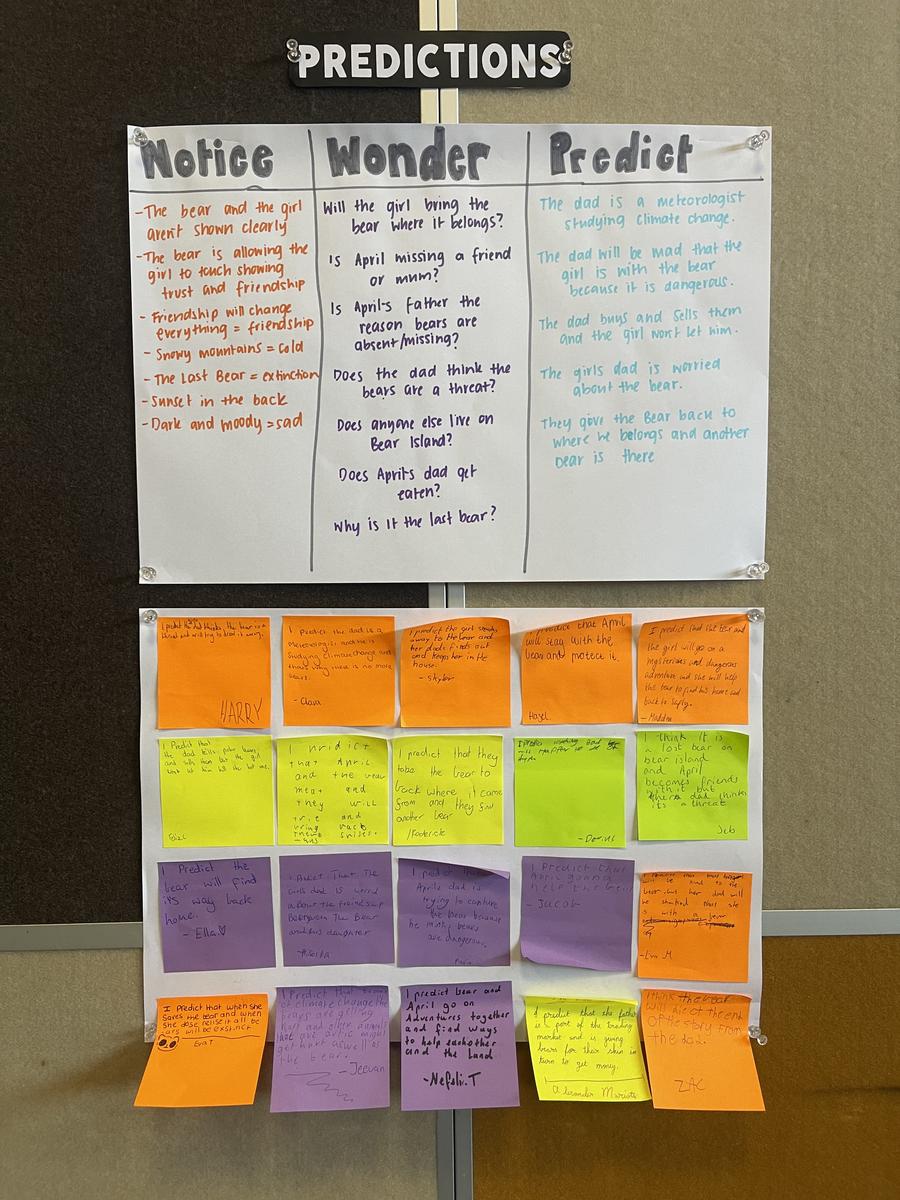 PREDICTIONS
Notice
- The bear and the girl
aren't shown clearly
- The bear is allowing the
girl to touch showing
trust and friendship
- Friendship will change
everything = friendship
- Snowy mountains = cold
- The Last Bear = extinction
- Sunset in the back
- Dark and moody = sad
Wonder
Will the girl bring the
bear where it belongs?
Is April missing a friend
or mum?
Is April's Father the
reason bears are
absent/missing?
Does the dad think the
bears are a threat?
Does anyone else live on
Bear Island?
Does April's dad get
eaten?
Why is it the last bear?
Predict
The dad is a meteorologist
studying climate change.
The dad will be mad that the
girl is with the bear
because it is dangerous.
The dad buys and sells them
and the girl won't let him.
The girls dad is worried
about the bear.
They give the Bear back to
where he belongs and another
bear is there
I predict the dad thinks the bear is a
threat and will try to
HARRY
I Predict the dad is a
and he is
studying climate change and
thats why there is no more
bears.
- Clara
I predict the girl sneaks
away to the bear and
her dad finds out
and keeps her in the
house.
- Skyler
I predict that April
will stay with the
bear and protect it.
Hazel.
I predict that the bear and
the girl will go on a
mysterious and dangerous
adventure and she will help
the bear to find his home and
back to safty.
- Maddox
I Predict that
the dad kills polar bears
and sells them but the girl
wont let him kill the last one.
I
that April
and the bear
meat and
they will
and
bring back
I predict that they
take the bear to
back where it came
from and they find
another bear
/Roderick
I Predict
- Darius
I think It is
a lost bear on
bear island
and April
becomes friends
with it but
her dad thinks
its a threat
Jeb
I Predict the
bear will find
its way back
home.
- Ella
I That The
girls dad is
about the freindship
The Bear
and his daughter
I
April's dad is
trying to capture
the bear because
he thinks bears
are dangerous.
I Predict that
April gonna
help the
- Jacob
will be kind to the
bear but her dad will
be shocked that she
is with a
I Predict that when she
Saves the bear and when
she dose relise it all be
ars will be exstinct
Eva T
I Predict that
of climate change the
bears are getting
hurt and other animals
get hurt as well as
the bear.
- Jeevan
I predict bear and
April go on
Adventures together
and find ways
to help eachother
and the Land
- Nefeli.T
I predict that the father
is part of the trading
market and is giving
bears for their skin in
turn to get money.
I think the bear
will die at the end
of the story from
the dad.
ZAC